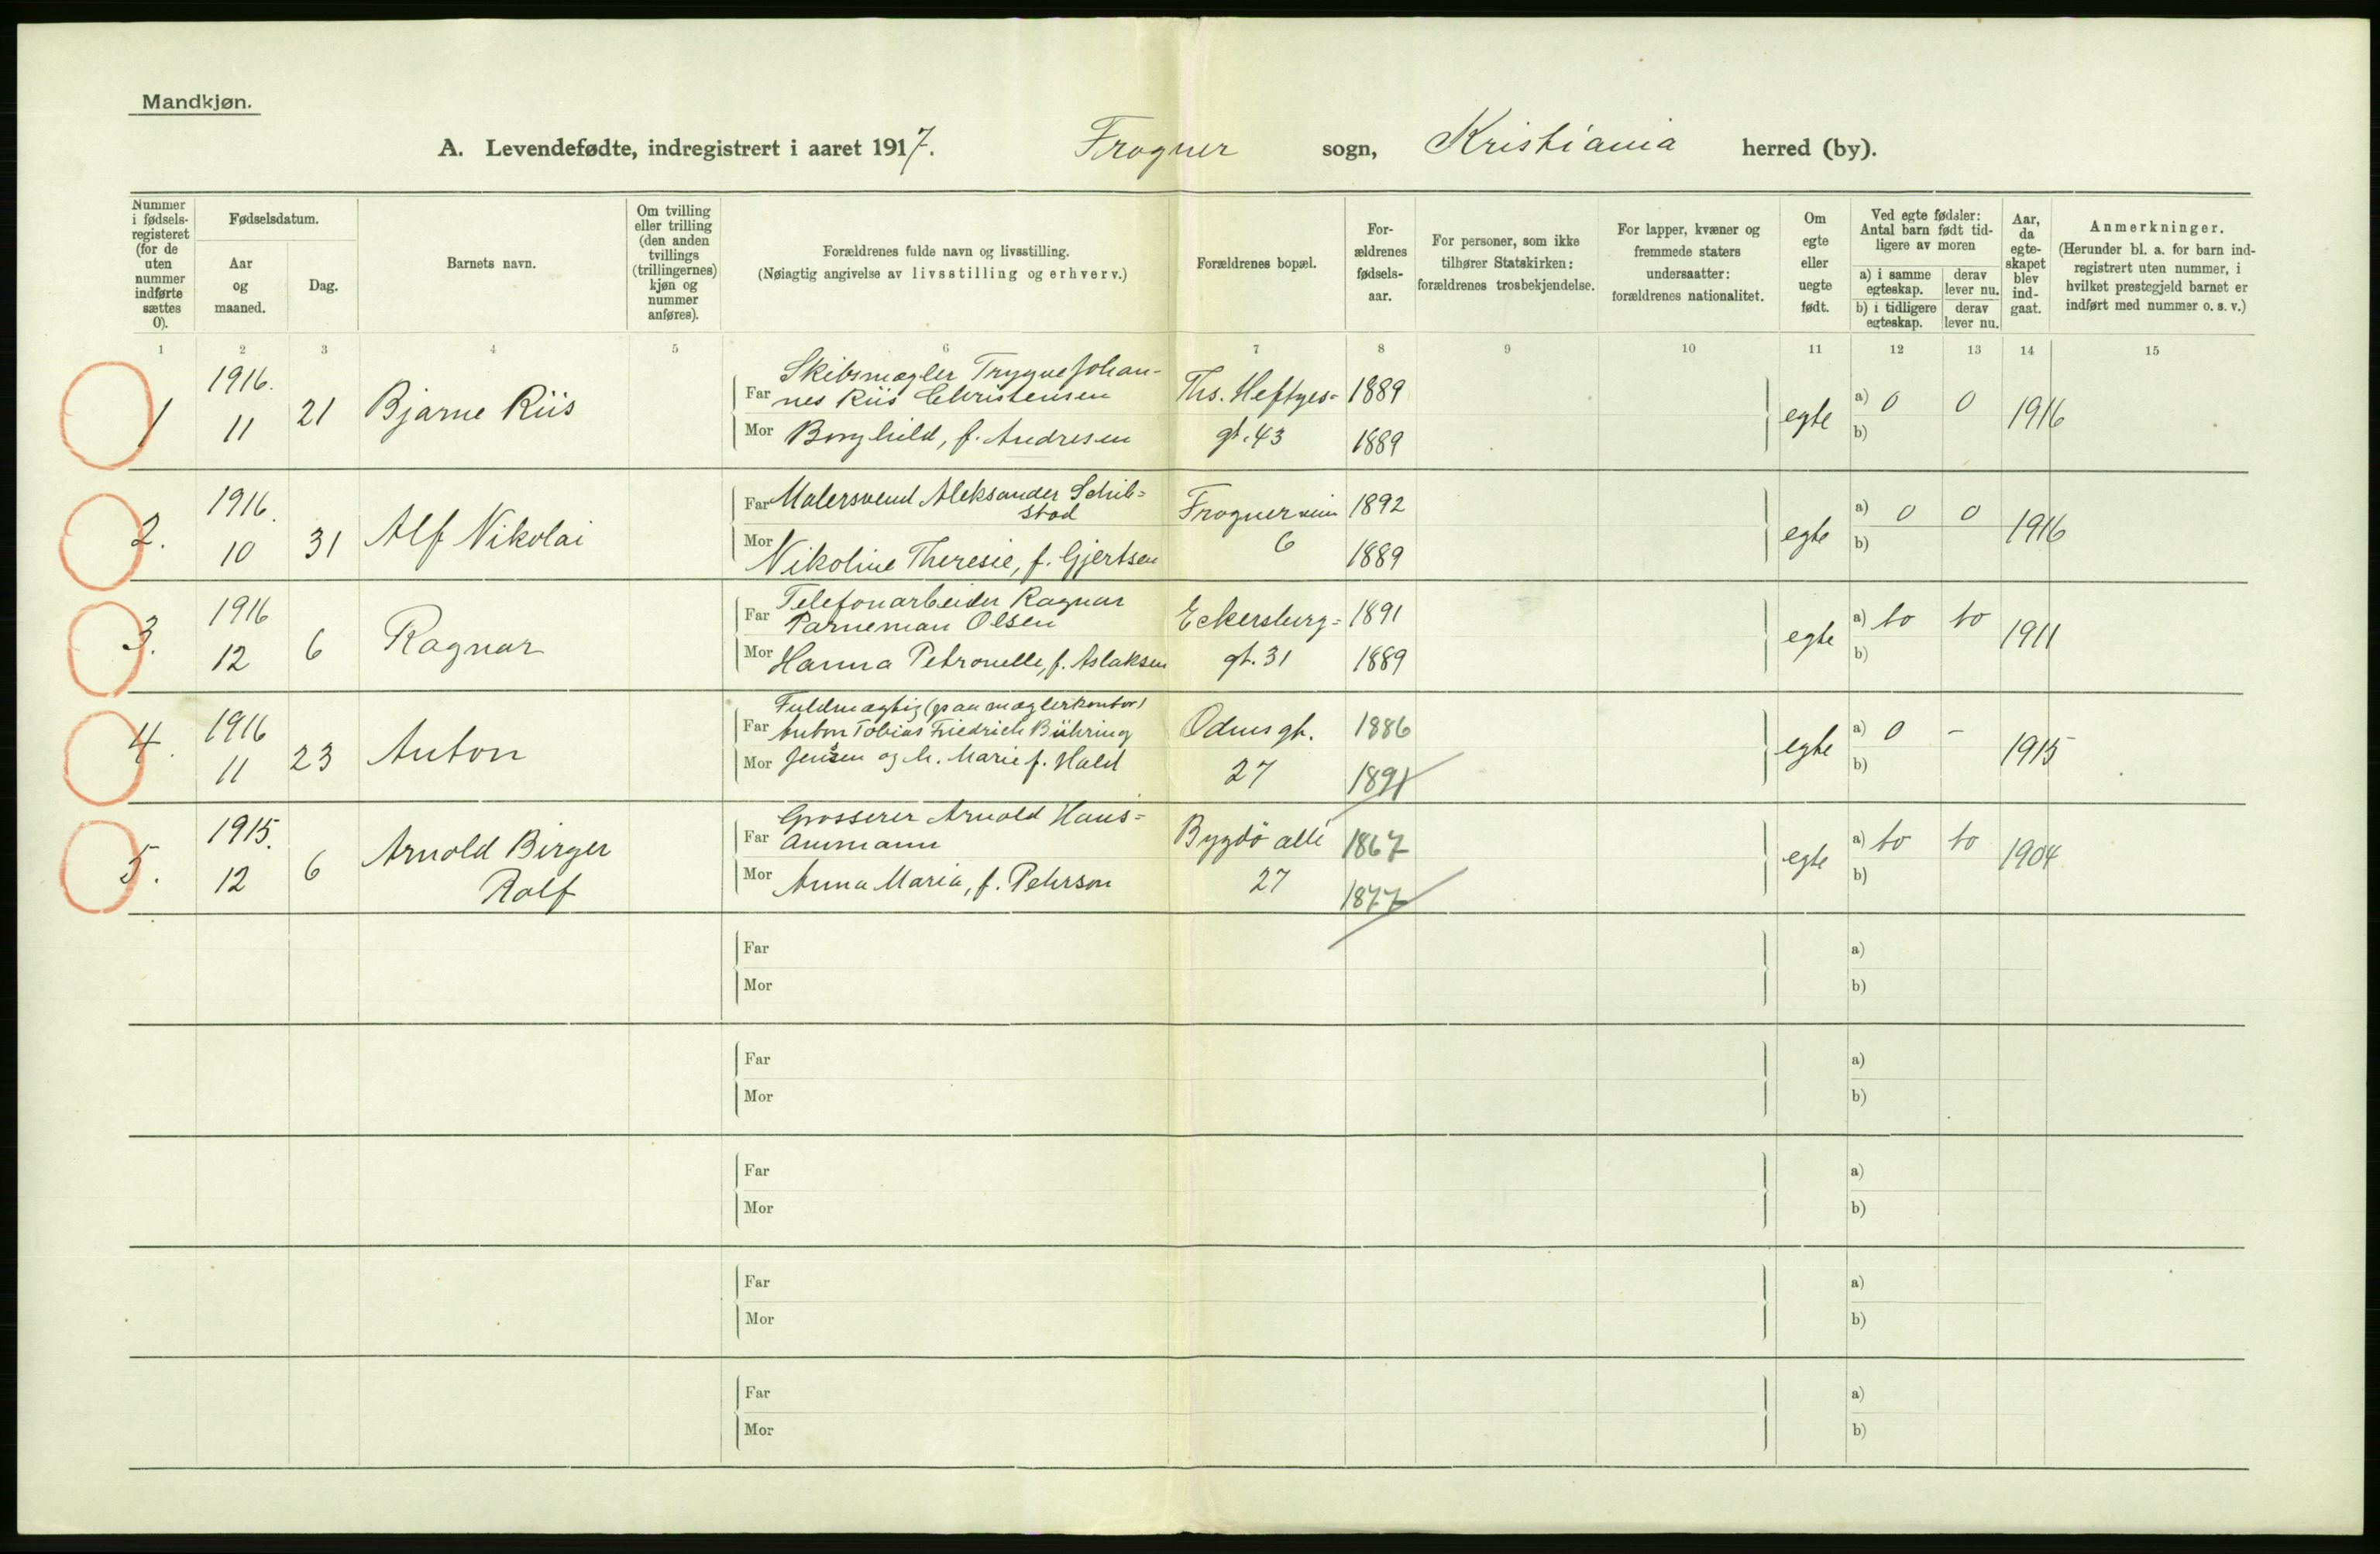 Mandkjøn.
A. Levendefødte, indregistrert i aaret 1917. Frogner sogn, Kristiania herred (by).
Nummer i fødsels-registeret (for de uten nummer indførte sættes 0).
Fødselsdatum.
Aar og maaned.
Dag.
Barnets navn.
Om tvilling eller trilling (den anden tvillings (trillingernes) kjøn og nummer anføres).
Forældrenes fulde navn og livsstilling.
(Nøiagtig angivelse av livsstilling og erhverv.)
Forældrenes bopæl.
For-ældrenes fødsels-aar.
For personer, som ikke tilhører Statskirken: forældrenes trosbekjendelse.
For lapper, kvæner og fremmede staters undersaatter: forældrenes nationalitet.
Om egte eller uegte født.
Ved egte fødsler: Antal barn født tid-ligere av moren
a) i samme egteskap.
derav lever nu.
b) i tidligere egteskap.
derav lever nu.
Aar, da egte-skapet blev ind-gaat.
Anmerkninger.
(Herunder bl. a. for barn ind-registrert uten nummer, i hvilket prestegjeld barnet er indført med nummer o. s. v.)
1 2 3 4 5 6 7 8 9 10 11 12 13 14 15
1916. Skibsmægler Trygve Johan-
1 11 21 Bjarne Riis Far nes Riis Christensen Ths. Heftyes= 1889 egte a) 0 0 1916
Mor Borghild, f. Andresen gt. 43 1889 b)
1916. Far Malersvend Aleksander Schie=
stad Frognervein 1892 a) 0 0
2. 10 31 Alf Nikolai Mor Nikoline Theresie, f. Gjertsen 6 1889 egte b) 1916
1916 Telefonarbeider Ragnar
3. 12 6 Ragnar Far Parneman Olsen Eckersburg= 1891 egte a) to to 1911
Mor Hanna Petronelle, f. Aslaksen gt. 31 1889 b)
1916 Fuldmægtig (paa mæglerkontor)
4. 11 23 Anton Far Anton Tobias Friedrich Bühring Odins gt. 1886 egte a) 0 - 1915
Mor Jensen og M. Marie f. Hald 27 1891 b)
1915. Grosserer Arnold Haus=
5. 12 6 Arnold Birger Far ammann Bygdö allé 1867 egte a) to to 1904
Rolf Mor Anna Maria, f. Pehrson 27 1877 b)
Far a)
Mor b)
Far a)
Mor b)
Far a)
Mor b)
Far a)
Mor b)
Far a)
Mor b)